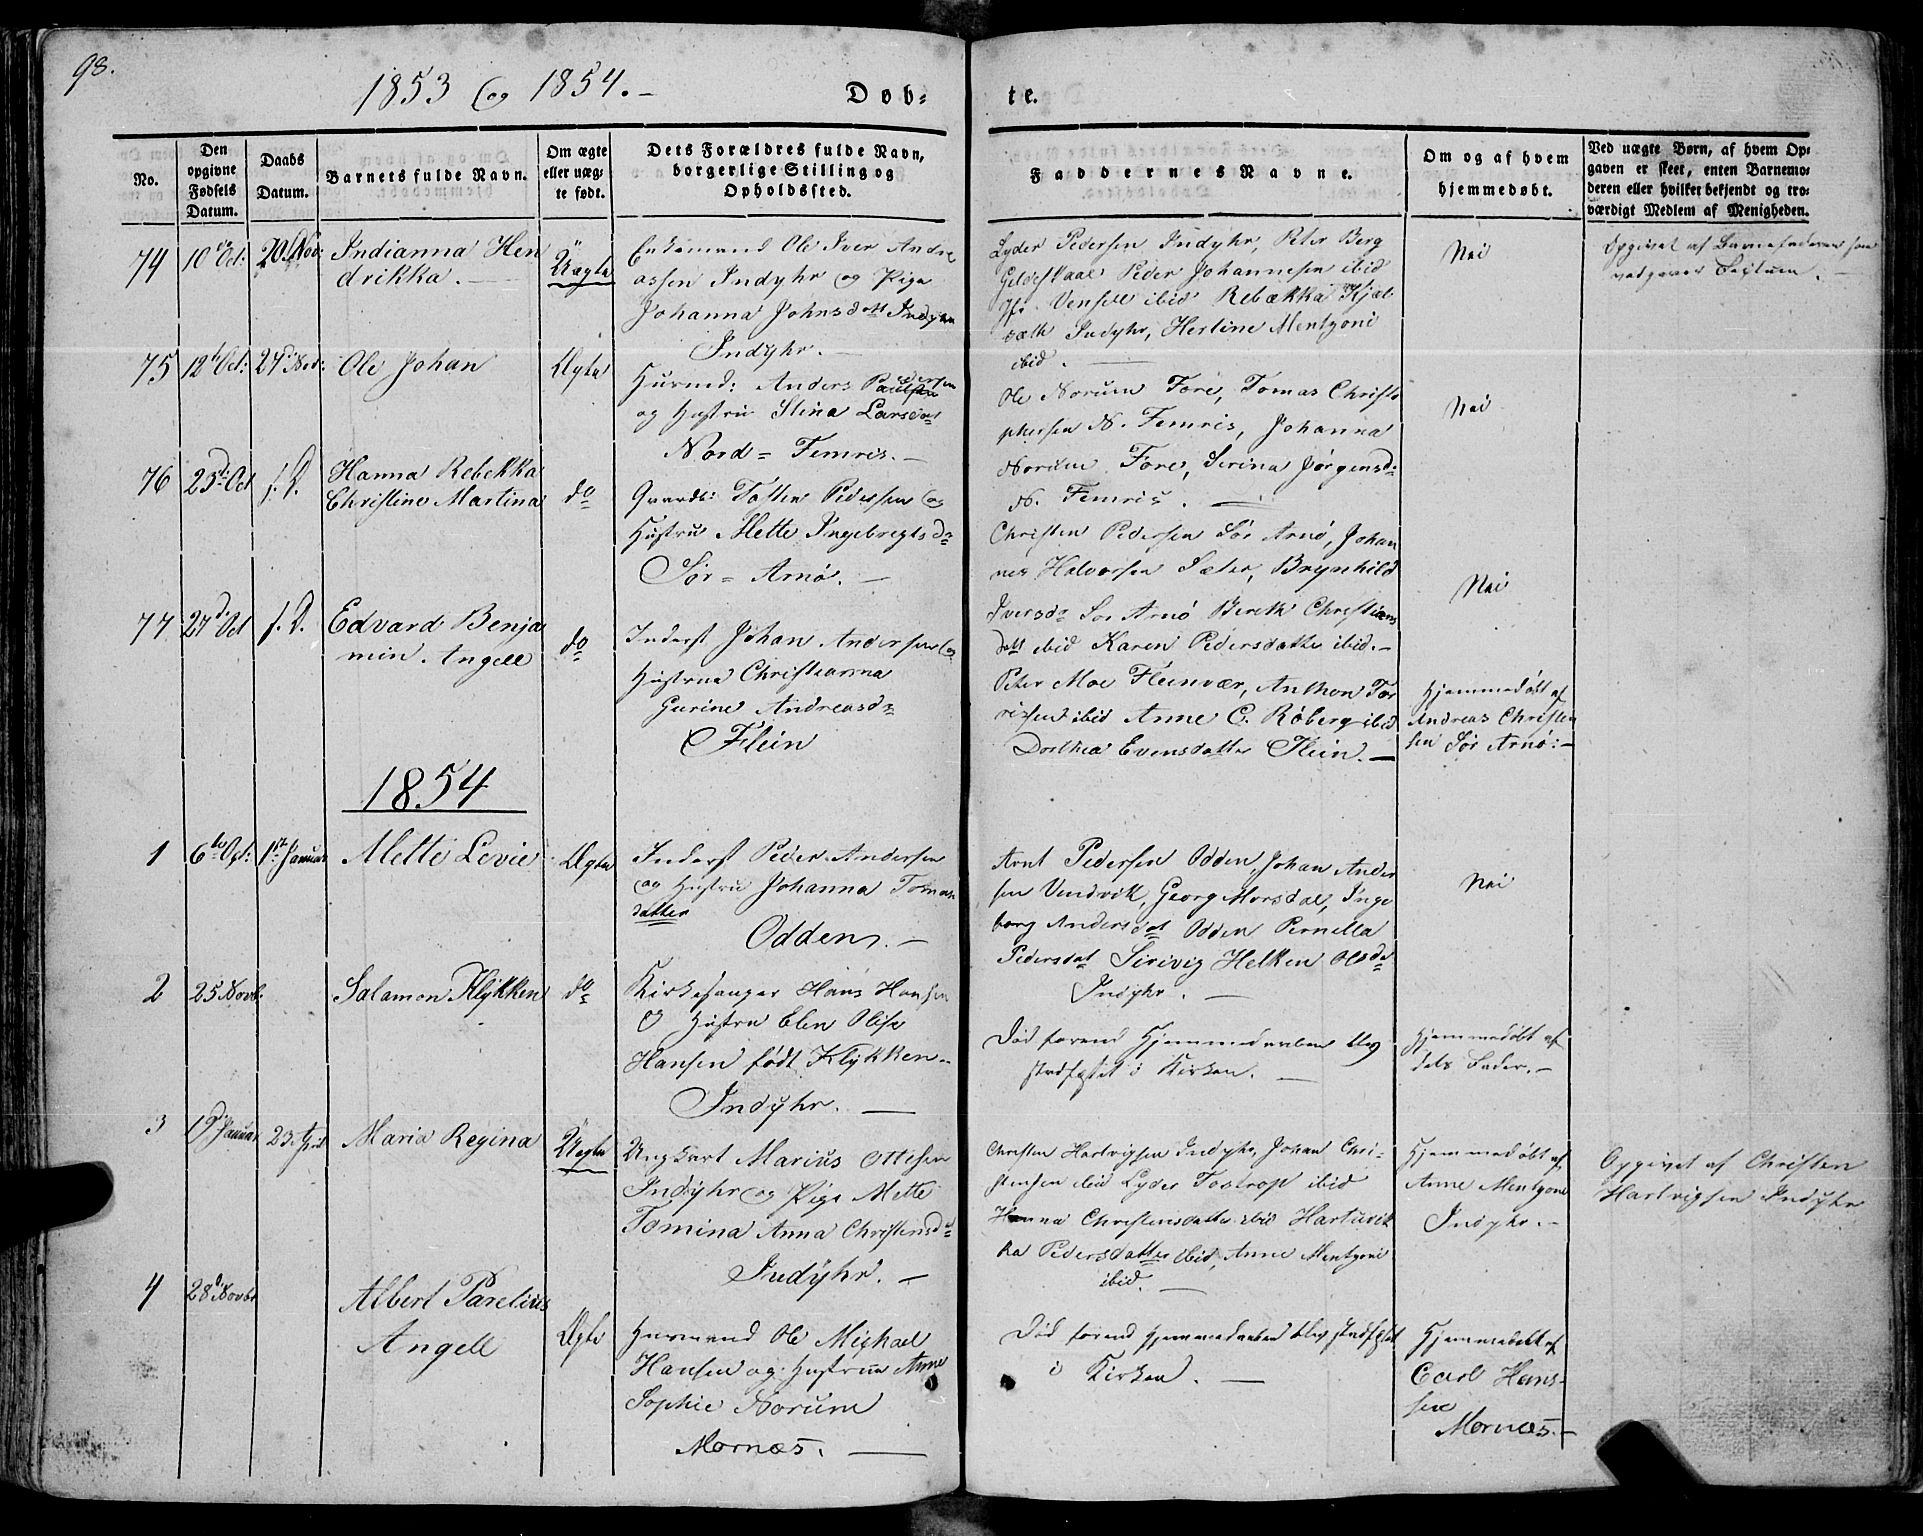 98.
1853 og 1854. -
Døb-
te.
No.
Den opgivne Fødsels Datum.
Daabs Datum.
Barnets fulde Navn.
Om ægte eller uægte født.
Dets Forældres fulde Navn, borgerlige Stilling og Opholdssted.
Faddernes Navne.
Om og af hvem hjemmedøbt.
Ved uægte Børn, af hvem Opgaven er skeet, enten Barnemoderen eller hvilket bekjendt og troværdigt Medlem af Menigheden.
74
10de Oct:
20 Nov:
Indianna Hen
drikka. -
Uægte
Enkemand Ole Iver Andre
assen Indyhr og Pige
Johanna Johnsdatt Indyhr
Indyhr. -
Lyder Pedersen Indyhr, Peter Berg
Gildeskaal Peder Johannesen ibid
Rebækka
Indyhr, Hertine Mentzoni
ibid.
Nei
Opgivet af Barnefaderen som
75
12te Oct:
27de Nov:
Ole Johan
Ægte
Husmd: Anders Pedersen
og Hustru Stina Larsdat
Nord = Femris. -
Ole Norum Fore, Tomas Christo
phersen N. Femris, Johanna
Norum Fore, Serina Jørgensd:
N. Femris. -
Nei
76
23de Oct
s. D.
Hanna Rebekka
Christine Martina
do
Gaardb: Tollen Pedersen og
Hustru Mette Ingebregtsd:
Sør = Arnø. -
Christen Pedersen Sør Arnø, Johan
nes Halvorsen Sæter, Brynhild
Iversd: Sør Arnø Bereth Christians
datt ibid Karen Pedersdatter ibid. -
Nei
77
27de Oct
s. D.
Edvard Benja
min. Angell
do
Inderst Johan Andersen og
Hustrue Christianna
Gurine Andreasd:
Flein
Peter Moe Fleinvær, Anthon Tor
rissen ibid Anne C. Røberg ibid
Dorthea Evensdatter Flein. -
Hjemmedøbt af
Andreas Christen
sen Sør Arnø: -
1854
1
1st Januar
Mette Levie
Ægte
Inderst Peder Andersen
og Hustru Johanna Tomas
datter
Odden. -
Arnt Pedersen Odden, Johan Ander
sen Vendvik, Georg Morsdal, Inge
borg Andersdat Odden Pernella
Pedersdat Sirivig Helken Olsd:
Indyhr. -
Nei
2
25 Novb:
Salamon Klykken
do
Kirkesanger Hans Hansen
& Hustru Elen Olise
Hansen født Klykken -
Indyhr. -
Død forend Hjemmedaaben blev
stadfæstet i Kirken. -
Hjemmedøbt af
dets Fader. -
3
19de Januar
23 April
Maria Regina
Uægte
Ungkarl Marius Ottesen
Indyhr og Pige Mette
Tomina Anna Christensd:
Indyhr. -
Christen Hartvigsen Indyhr, Johan Chri-
stensen ibid Lyder Tostrop ibid
Hanna Christensdatter ibid Hartuvik
ka Pedersdatter ibid, Anne Mentzoni
ibid. -
Hjemmedøbt af
Anne Mentzoni
Indyhr. -
Opgivet af Christen
Hartvigsen Indyhr
4
28de Novbr
Albert Parelius
Angell
Ægte
Husmand Ole Michael
Hansen og Hustrue Anne
Sophie Norum
Mornæs. -
Død forend Hjemmedaaben blev stadfæstet
i Kirken. -
Hjemmedøbt af
Carl Hans-
sen
Mornæs. -